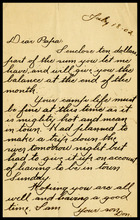 July 18. 02
Dear Papa:
I enclose ten dollars
part of the sum you let me
have and will give you the
balance at the end of the
month.
Your camp life must
be fine at this time as it
is mighty hot and mean
in town. I had planned to
make a trip down the
river tomorrow night but
had to give it up on account
of having to be in town
Sunday.
Hoping you are all
well and having a good
time, I am
Your son,